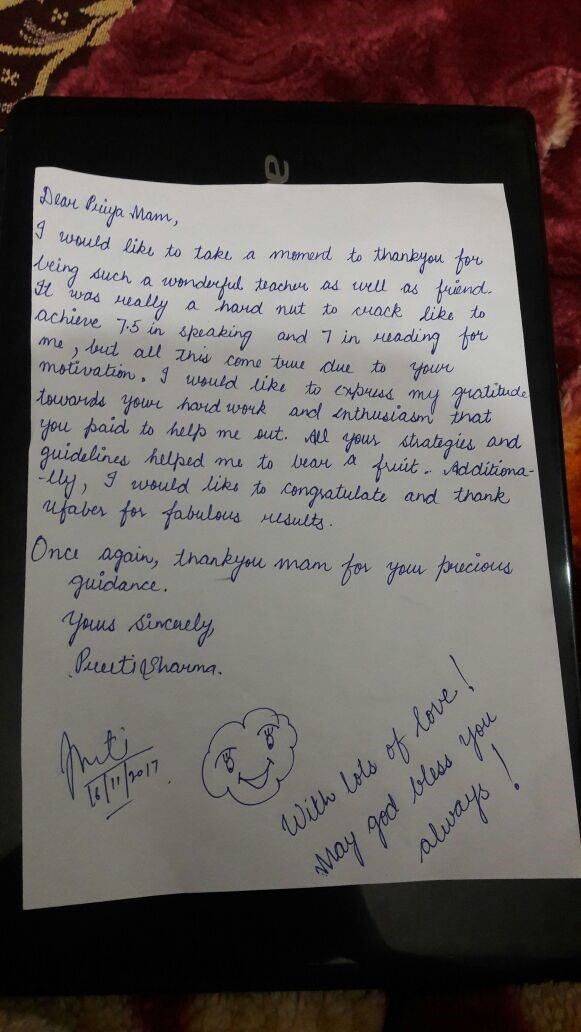 Dear Priya Mam,
I would like to take a moment to thankyou for
being such a wonderful teacher as well as friend.
It was really a hard nut to crack like to
achieve 7.5 in speaking and 7 in reading for
me, but all this come true due to your
motivation. I would like to express my gratitude
towards your hard work and enthusiasm that
you paid to help me out. All your strategies and
guidelines helped me to bear a fruit. Additiona-
-lly, I would like to congratulate and thank
Ufaber for fabulous results.
Once again, thankyou mam for your precious
guidance.
Yours Sincerely,
Preeti Sharma.
16/11/2017.
With lots of love!
May god bless you
always!